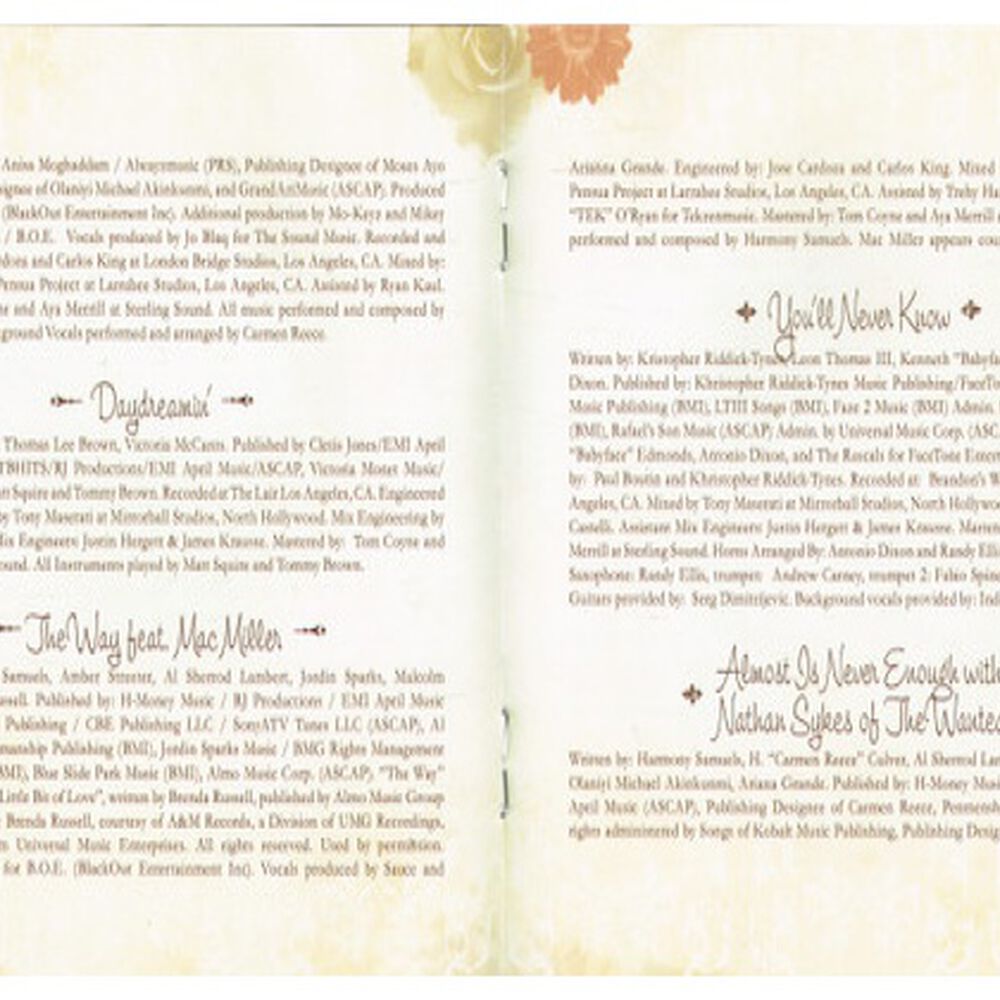 Anisa Moghaddam / Alwaysmusic (PRS), Publishing Designee of Moses Ayo
ignee of Olaniyi Michael Akinkunmi, and GrandArtMusic (ASCAP). Produced
(BlackOut Entertainment Inc). Additional production by Mo-Keyz and Mikey
/ B.O.E. Vocals produced by Jo Blaq for The Sound Music. Recorded and
rdoza and Carlos King at London Bridge Studios, Los Angeles, CA. Mixed by:
Pensua Project at Larrabee Studios, Los Angeles, CA. Assisted by Ryan Kaul.
ne and Aya Merrill at Sterling Sound. All music performed and composed by
ground Vocals performed and arranged by Carmen Reece.
Daydreamin'
Thomas Lee Brown, Victoria McCants. Published by Cletis Jones/EMI April
TBHITS/RJ Productions/EMI April Music/ASCAP, Victoria Monet Music/
att Squire and Tommy Brown. Recorded at The Lair Los Angeles, CA. Engineered
by Tony Maserati at Mirrorball Studios, North Hollywood. Mix Engineering by
Mix Engineers Justin Hergett & James Krausse. Mastered by: Tom Coyne and
ound. All Instruments played by Matt Squire and Tommy Brown.
The Way feat. Mac Miller
Samuels, Amber Streeter, Al Sherrod Lambert, Jordin Sparks, Malcolm
ussell. Published by: H-Money Music / RJ Productions / EMI April Music
Publishing / CBE Publishing LLC / SonyATV Tunes LLC (ASCAP), Al
manship Publishing (BMI), Jordin Sparks Music / BMG Rights Management
BMI), Blue Slide Park Music (BMI), Almo Music Corp. (ASCAP). "The Way"
Little Bit of Love", written by Brenda Russell, published by Almo Music Group
Brenda Russell, courtesy of A&M Records, a Division of UMG Recordings,
m Universal Music Enterprises. All rights reserved. Used by permission.
for B.O.E. (BlackOut Entertainment Inc). Vocals produced by Sauce and
Arianna Grande. Engineered by: Jose Cardoza and Carlos King. Mixed
Pensua Project at Larrabee Studios, Los Angeles, CA. Assisted by Trehy Ha
"TEK" O'Ryan for Tekzenmusic. Mastered by: Tom Coyne and Aya Merrill
performed and composed by Harmony Samuels. Mac Miller appears cou
You'll Never Know
Written by: Kristopher Riddick-Tynes, Leon Thomas III, Kenneth "Babyfac
Dixon. Published by: Khristopher Riddick-Tynes Music Publishing/FaceTo
Music Publishing (BMI), LTIII Songs (BMI), Faze 2 Music (BMI) Admin.
(BMI), Rafael's Son Music (ASCAP) Admin. by Universal Music Corp. (ASC
"Babyface" Edmonds, Antonio Dixon, and The Rascals for FaceTone Entert
by: Paul Boutin and Khristopher Riddick-Tynes. Recorded at: Brandon's W
Angeles, CA. Mixed by Tony Maserati at Mirrorball Studios, North Hollywo
Castelli. Assistant Mix Engineers Justin Hergett & James Krausse. Master
Merrill at Sterling Sound. Horns Arranged By: Antonio Dixon and Randy Elli
Saxophone: Randy Ellis, trumpet: Andrew Carney, trumpet 2: Fabio Spino
Guitars provided by: Serg Dimitrijevic. Background vocals provided by: Ind
Almost Is Never Enough with
Nathan Sykes of The Wanted
Written by: Harmony Samuels, H. "Carmen Reece" Culver, Al Sherrod Lam
Olaniyi Michael Akinkunmi, Ariana Grande. Published by: H-Money Mus
April Music (ASCAP), Publishing Designee of Carmen Reece, Penmansh
rights administered by Songs of Kobalt Music Publishing, Publishing Desig